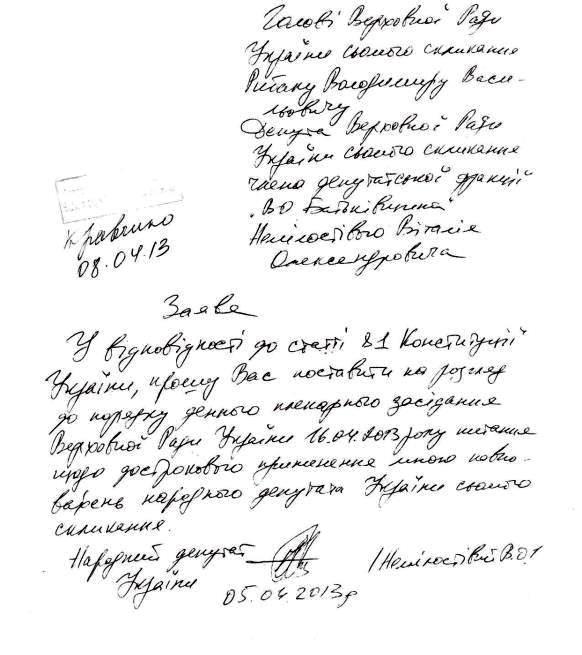 Голові Верховної Ради
України сьомого скликання
Рибаку Володимиру Васи-
льовичу
Депутата Верховної Ради
України сьомого скликання
члена депутатської фракції
"ВО Батьківщина"
Немілостівого Віталія
Олександровича
08.04.13
Заява
У відповідності до статті 81 Конституції
України, прошу Вас поставити на розгляд
до порядку денного пленарного засідання
Верховної Ради України 16.04.2013 року питання
щодо дострокового припинення мною повно-
важень народного депутата України сьомого
скликання.
Народний депутат
України
/Немілостівий В.О/
05.04.2013р